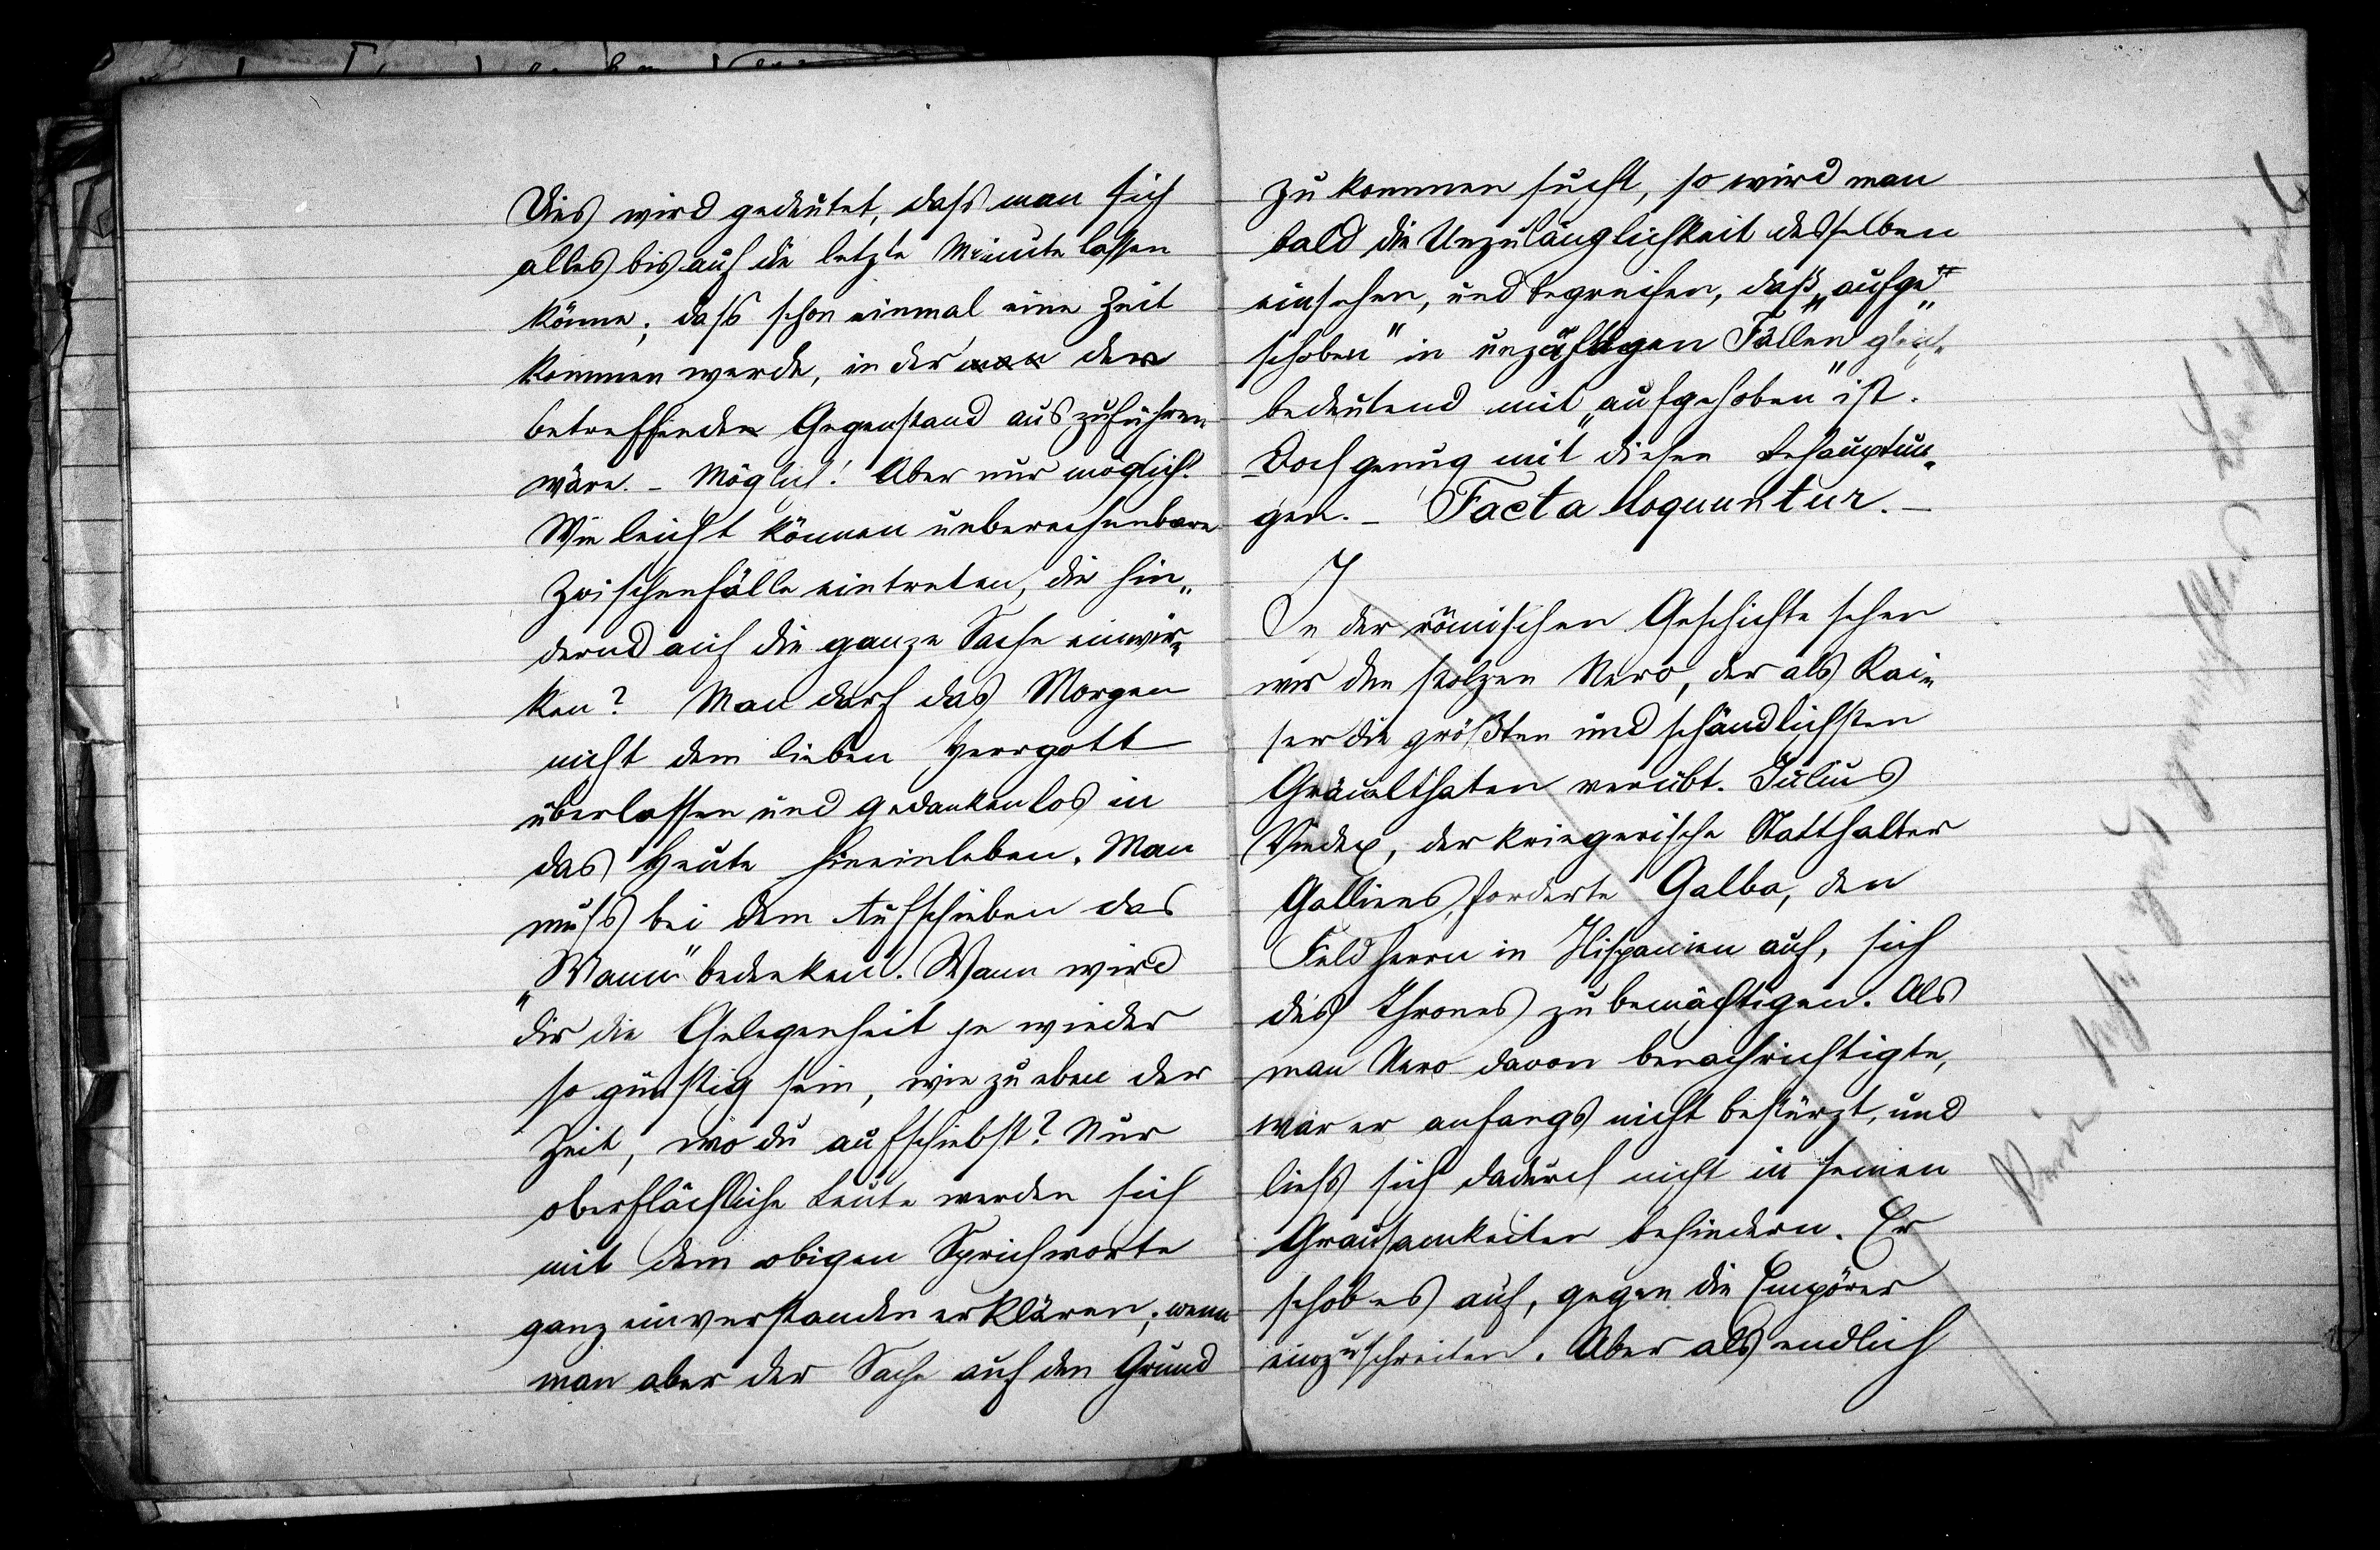 Dies wird gedeutet, dass man sich
alles bis auf die letzte Minute lassen
könne; dass schon einmal eine Zeit
kommen werde, in der man der
betreffende Gegenstand auszuführen
wäre. – Möglich! Aber nur möglich!
Wie leicht können unberechenbare
Zwischenfälle eintreten, die hin-
dernd auf die ganze Sache einwir-
ken? Man darf das Morgen
nicht dem lieben Herrgott
überlassen und gedankenlos in
das Heute hineinleben. Man
muss bei dem Aufschieben das
„Wann" bedenken. Wann wird
dir die Gelegenheit je wieder
so günstig sein, wie zu eben der
Zeit, wo du aufschiebst? Nur
oberflächliche Leute werden sich
mit dem obigen Sprichworte
ganz einverstanden erklären; wenn
man aber der Sache auf den Grund
zu kommen sucht, so wird man
bald die Unzulänglichkeit desselben
einsehen, und begreifen, daß „aufge-
schoben" in unzähligen Fällen gleich-
bedeutend mit „aufgehoben" ist.
Doch genug mit diesen Behauptun-
gen. – Facta loquuntur. –
In der römischen Geschichte sehen
wir den stolzen Nero, der als Kai-
ser die größten und schändlichsten
Gräuelthaten verübt. Julius
Vindex, der kriegerische Statthalter
Galliens, forderte Galba, den
Feldherrn in Hispanien auf, sich
des Thrones zu bemächtigen. Als
man Nero davon benachrichtigte,
war er anfangs nicht bestürzt, und
liess sich dadurch nicht in seinen
Grausamkeiten behindern. Er
schob es auf, gegen die Empörer
einzuschreiten. Aber als endlich
Kein